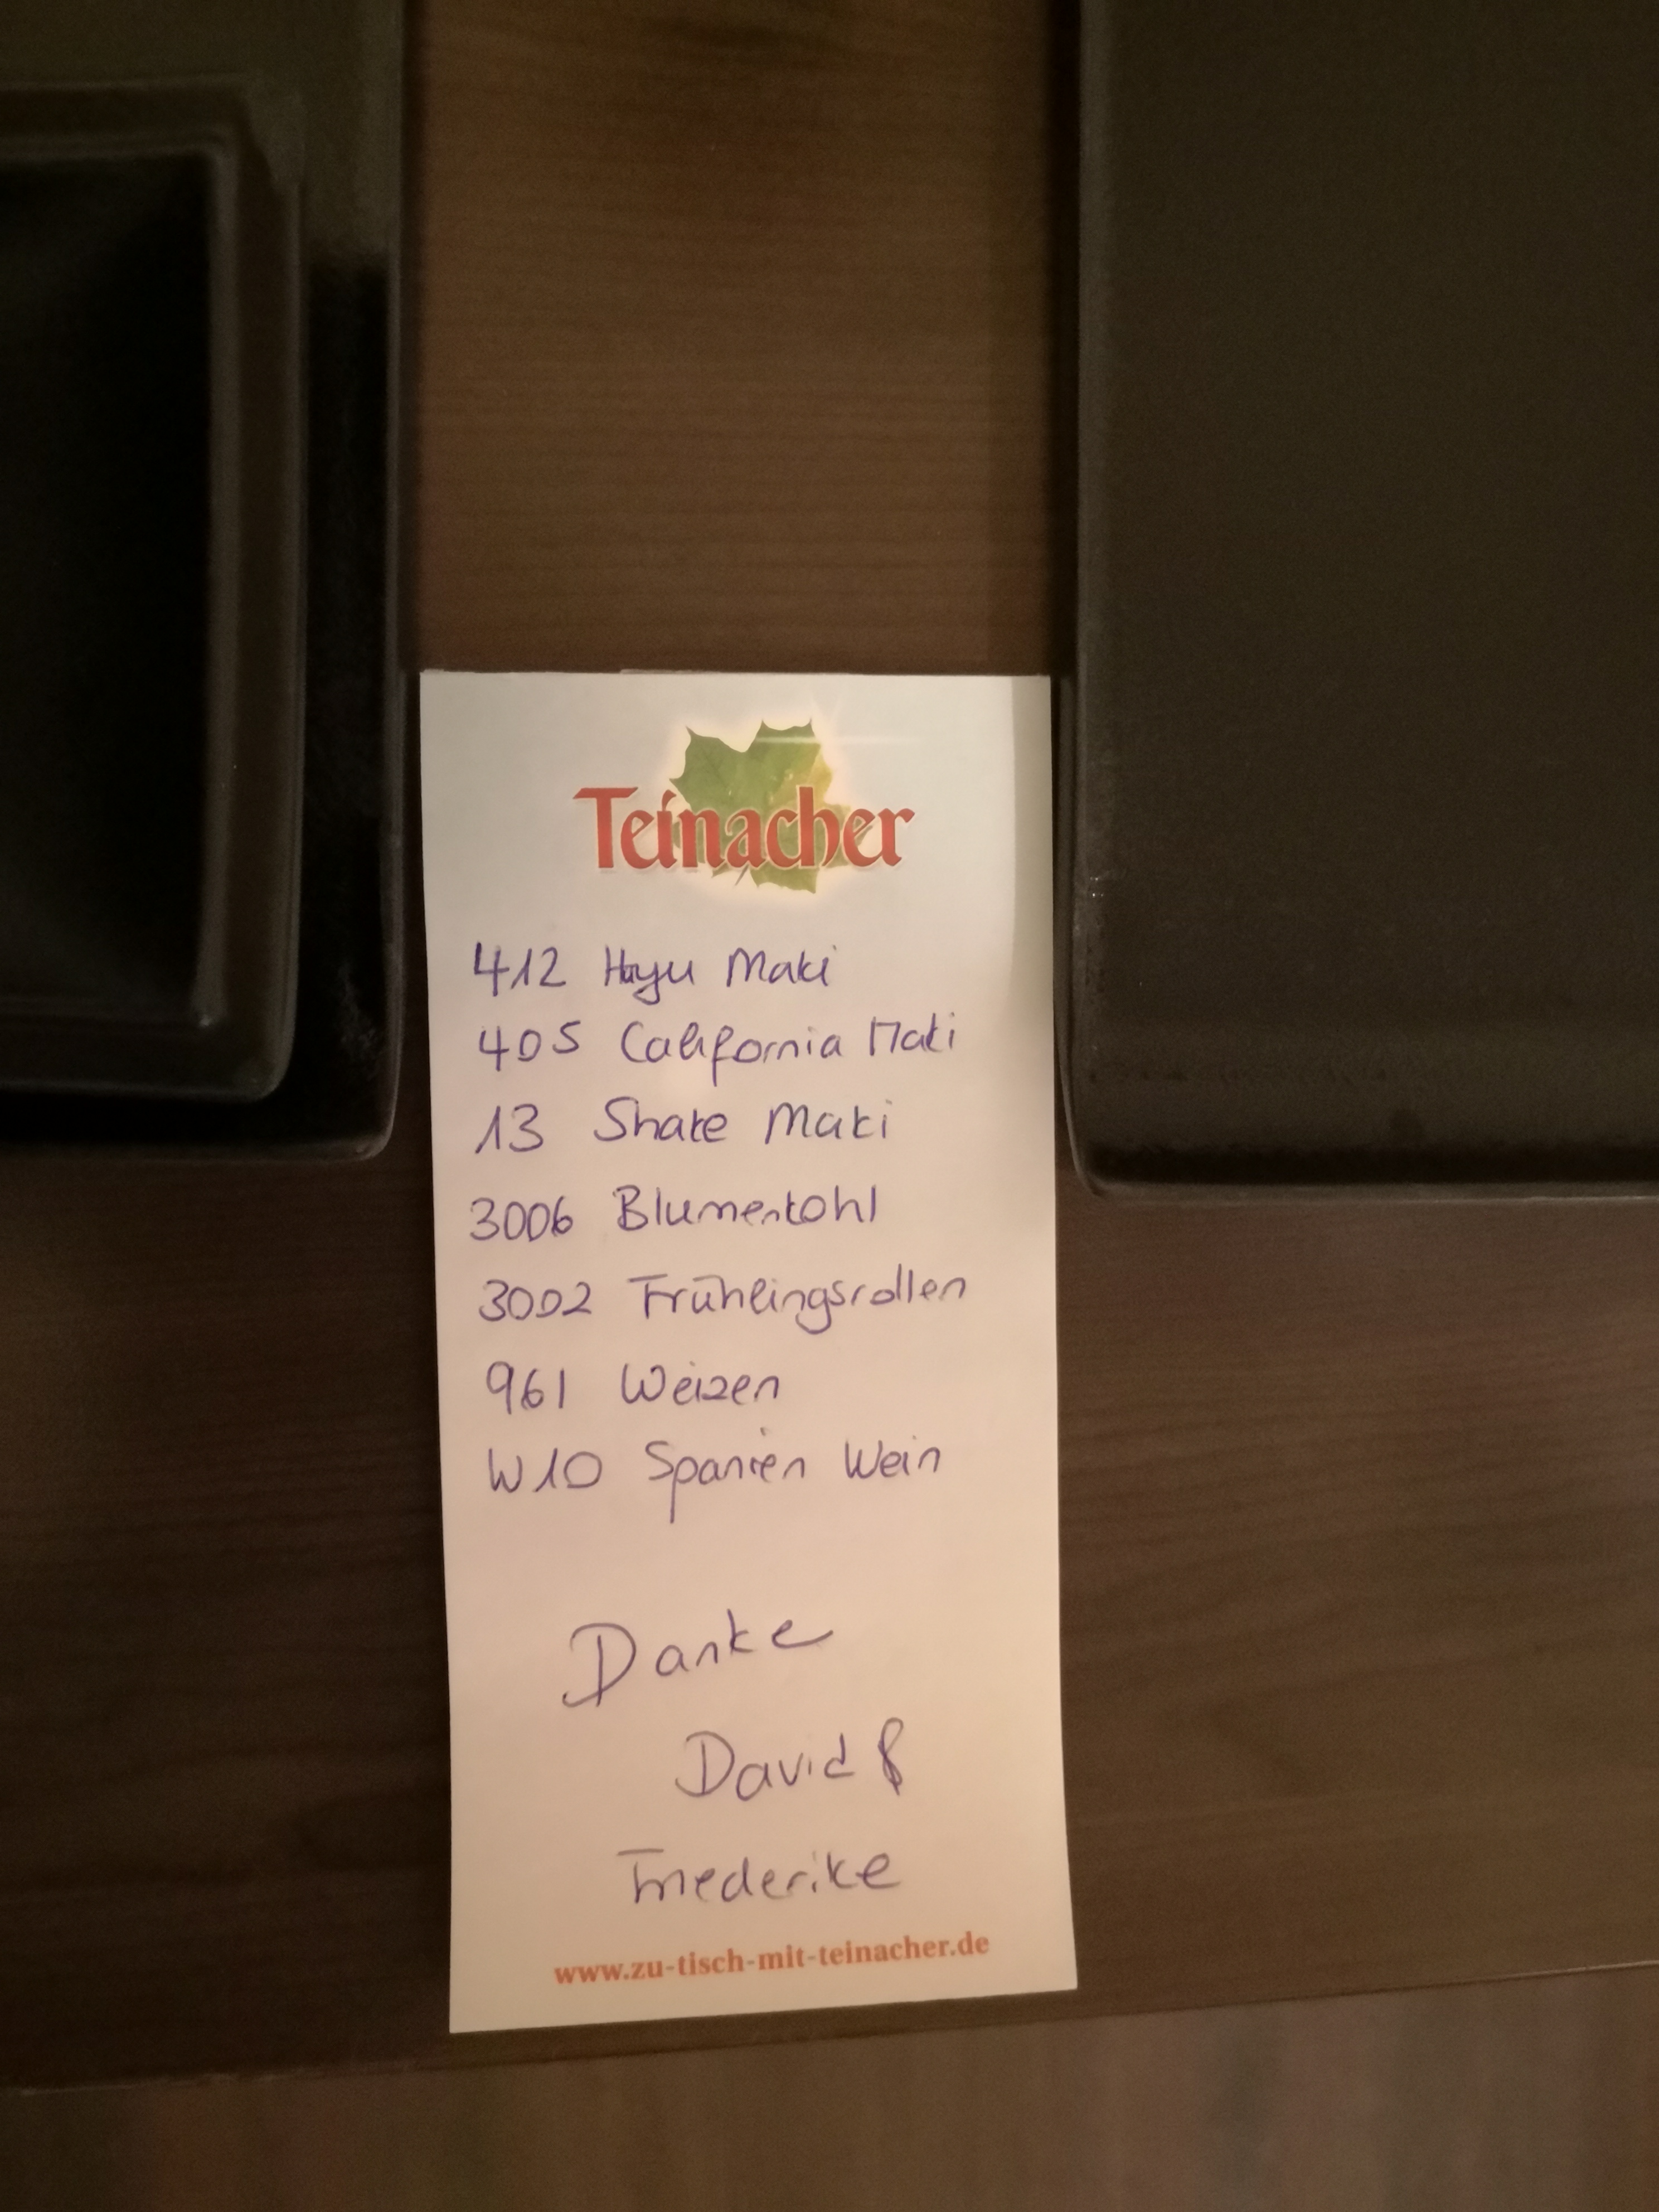 Teinacher
412 Hayu Maki
405 California Maki
13 Shake Maki
3006 Blumenkohl
3002 Frühlingsrollen
961 Weizen
W10 Spanien Wein
Danke
David &
Friederike
www.zu-tisch-mit-teinacher.de